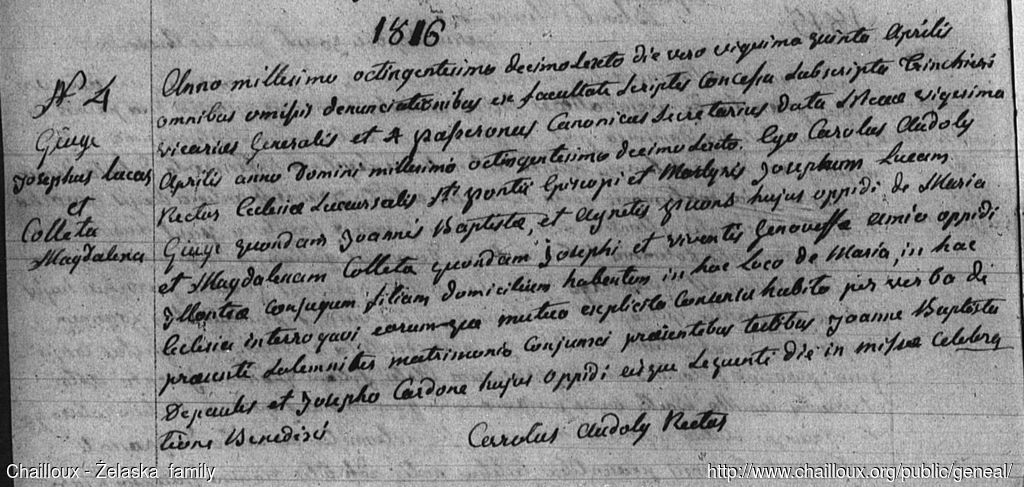 1816
N° 4
Giuge
Josephus Lucas
et
Colleta
Magdalena
Anno millesimo octingentesimo decimo sexto die vero vigesima quinta Aprilis
omnibus omissis denunciationibus ex facultate scriptis concessa subscripto Trinchieri
vicarius Generalis et A Passeronus Canonicus Secretarius data Niceae vigesima
Aprilis anno Domini millesimo octingentesimo decimo sexto. Ego Carolus Audoly
Rector Eclesiae Succursalis Sti Pontii Episcopi et Martyris Josephum Lucam
Giuge quondam Joannis Baptistae, et Agnetis hujus oppidi de Maria
et Magdalenam Colleta quondam Josephi et viventis Genoveffae oppidi
conjugum filiam domicilium habentem in hac Loco de Maria, in hac
Eclesia interrogavi eorumque mutuo explicito consensu habito per verba de
praesenti solemniter matrimonio conjunxi praesentibus testibus Joanne Baptista
Depaules et Josepho Cardone hujus oppidi eisque sequenti die in missae celebra
tione Benedixi
Carolus Audoly Rector
Chailloux - Żelaska family
http://www.chailloux.org/public/geneal/